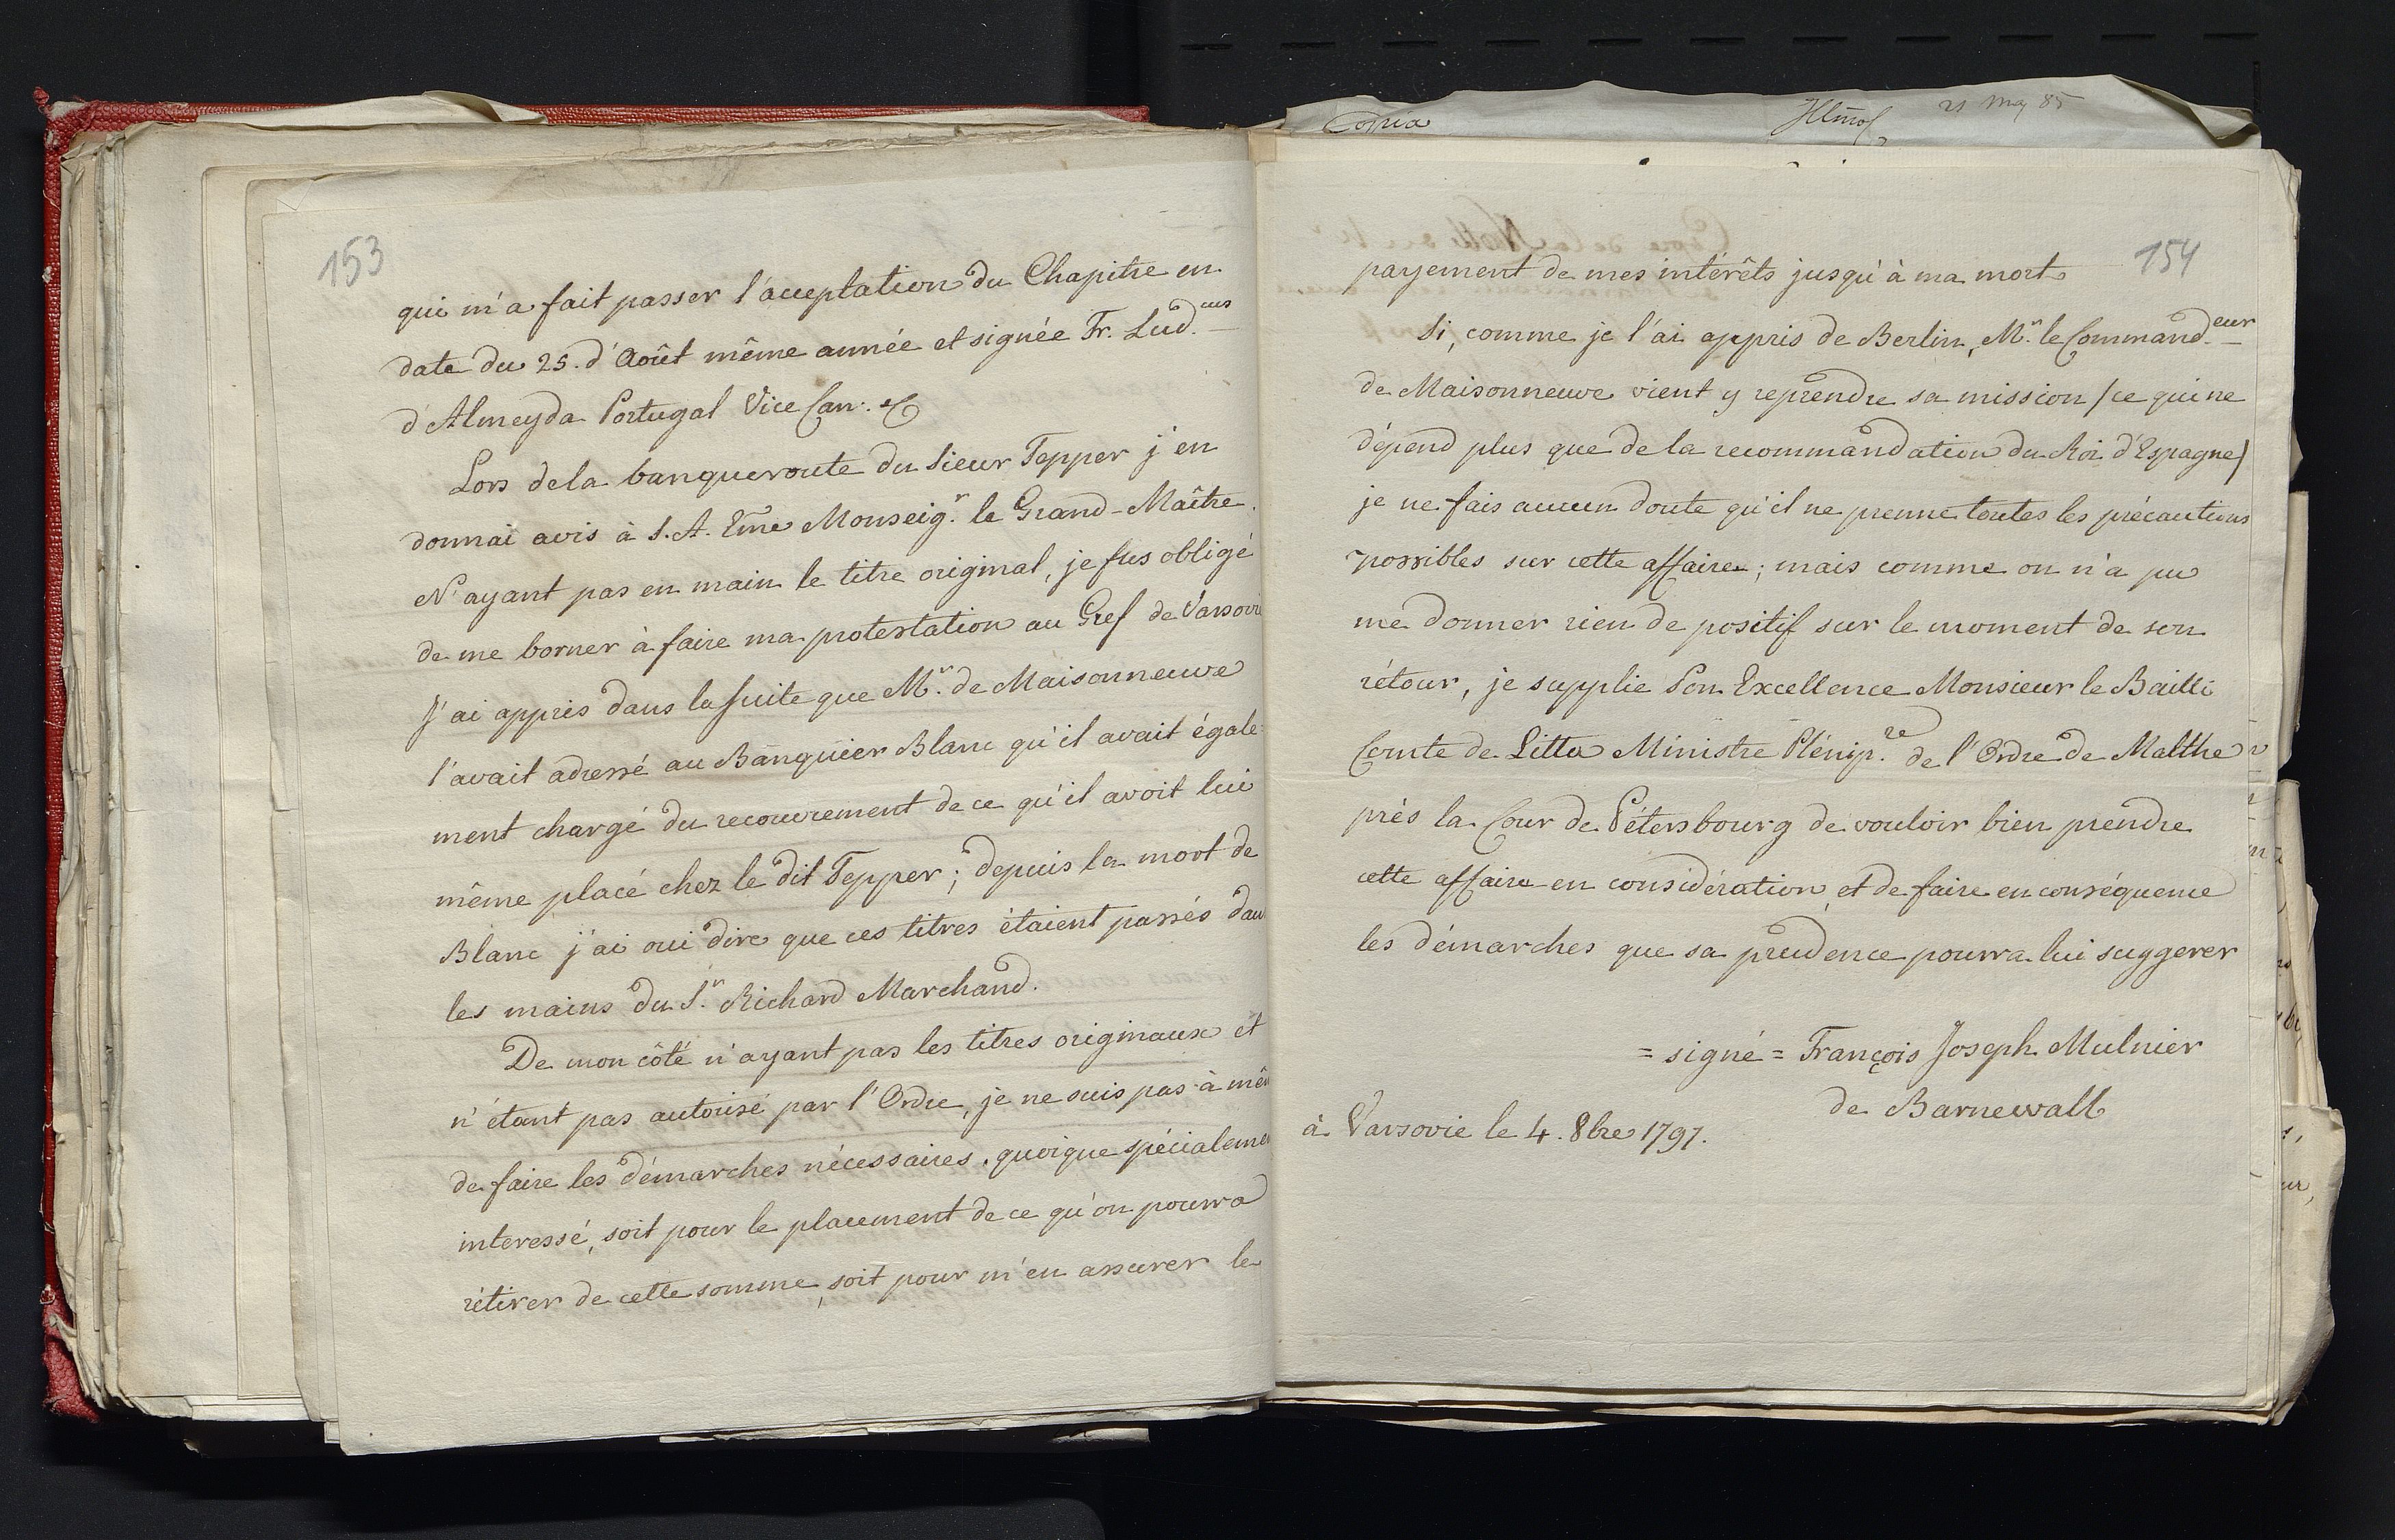 153
qui m'a fait passer l'acceptation du Chapitre en
date du 25. d'Août même année et signée Fr. Lud.cus
d'Almeyda Portugal Vice Can. &
Lors de la banqueroute du Sieur Tepper j'en
donnai avis à S. A. Eme Monseig.r le Grand-Maître.
N'ayant pas en main le titre original, je fus obligé
de me borner à faire ma protestation au Gref de Varsovie
J'ai appris dans la suite que M.r de Maisonneuve
l'avait adressé au Banquier Blanc qu'il avait égale-
ment chargé du recouvrement de ce qu'il avoit lui
même placé chez le dit Tepper; depuis la mort de
Blanc j'ai oui dire que ces titres étaient passés dans
les mains du S.r Richard Marchand.
De mon côté n'ayant pas les titres originaux et
n'étant pas autorisé par l'Ordre, je ne suis pas à mê
de faire les démarches nécessaires, quoique spécialeme
interessé, soit pour le placement de ce qu'on pourra
rétirer de cette somme, soit pour m'en assurer le
Copia
Illmo
21 May 85
154
payement de mes intérêts jusqu'à ma mort.
Si, comme je l'ai appris de Berlin, M.r le Command.eur
de Maisonneuve vient y reprendre sa mission /ce qui ne
dépend plus que de la recommandation du Roi d'Espagne/
je ne fais aucun doute qu'il ne prenne toutes les précautions
possibles sur cette affaire; mais comme on n'a pu
me donner rien de positif sur le moment de son
rétour, je supplie Son Excellence Monsieur le Bailli
Comte de Litta Ministre Plénip.re de l'Ordre de Malthe
près la Cour de Pétersbourg de vouloir bien prendre
cette affaire en considération, et de faire en conséquence
les démarches que sa prudence pourra lui suggerer
= signé = François Joseph Mulnier
de Barnewall
à Varsovie le 4. 8bre 1797.